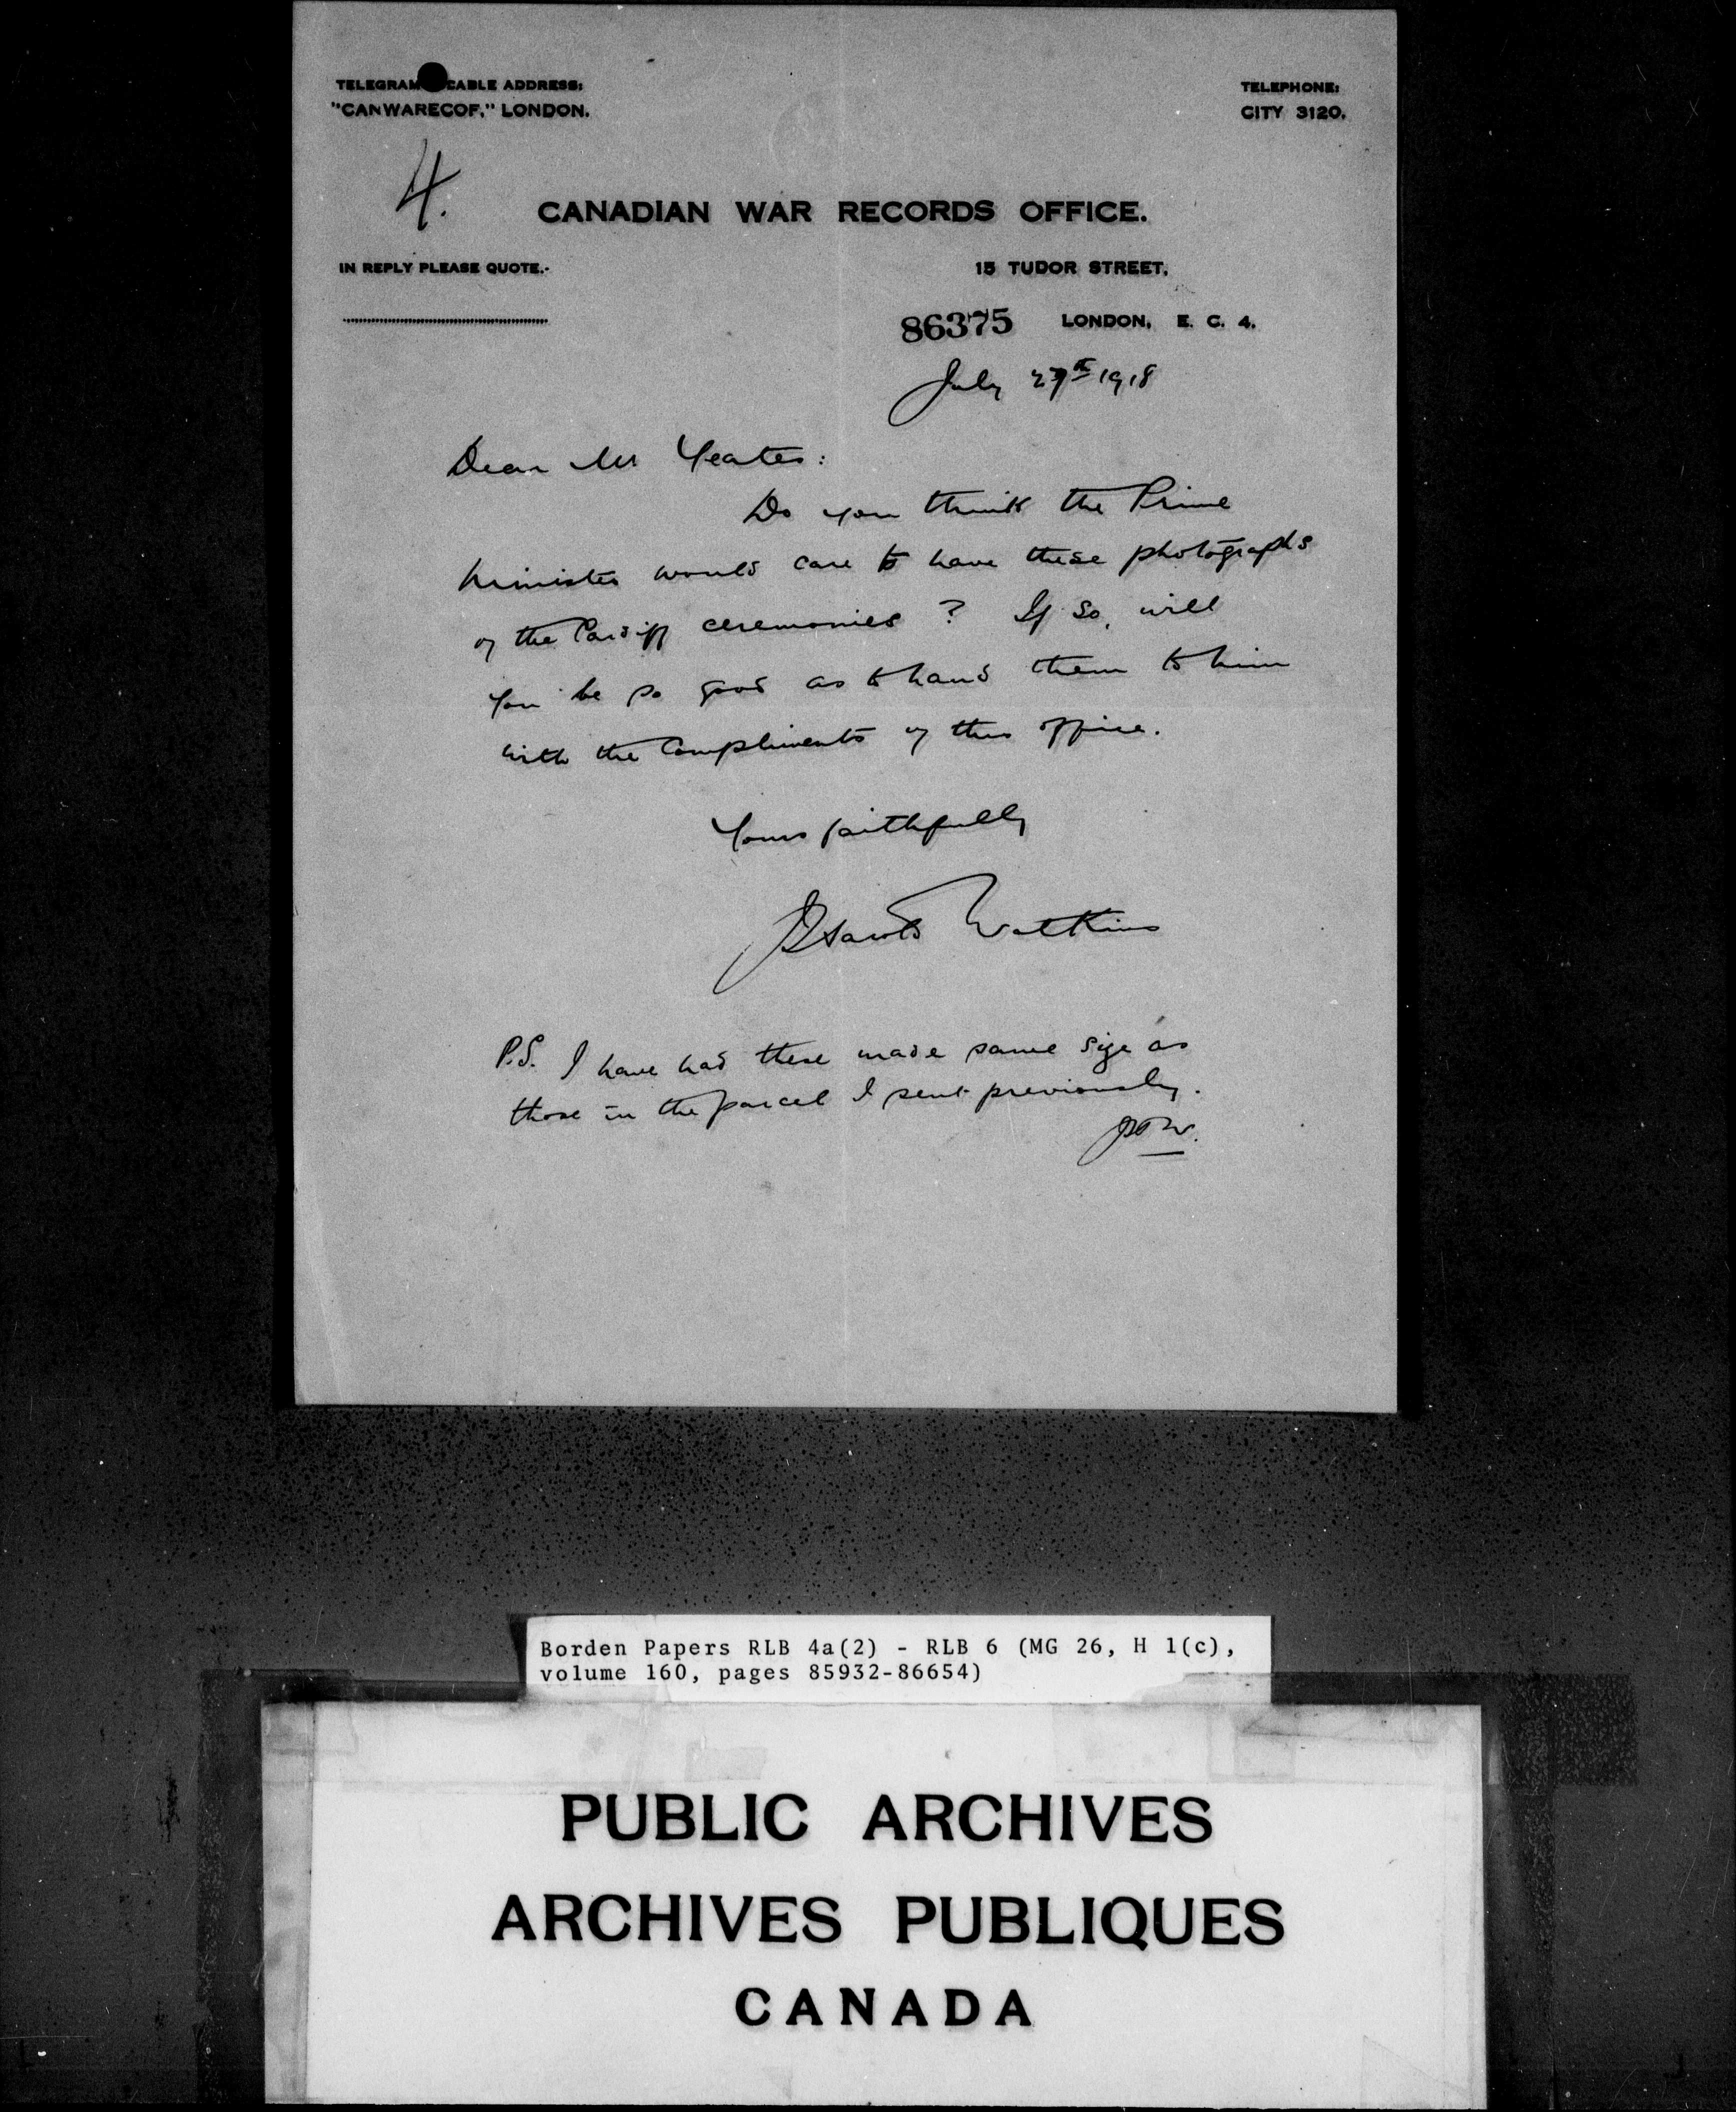 TELEGRAM CABLE ADDRESS:
"CANWARECOF," LONDON.
TELEPHONE:
CITY 3120.
4.
CANADIAN WAR RECORDS OFFICE.
IN REPLY PLEASE QUOTE.-
15 TUDOR STREET,
86375 LONDON, E. C. 4.
July 27th 1918
Dear Mr Yeates:
Do you think the Prime
Minister would care to have these photographs
of the Cardiff ceremonies? If so, will
you be so good as to hand them to him
with the Compliments of this office.
Yours faithfully
J Harold Watkins
P.S. I have had these made same size as
those in the parcel I sent previously.
JHW.
Borden Papers RLB 4a(2) - RLB 6 (MG 26, H 1(c),
volume 160, pages 85932-86654)
PUBLIC ARCHIVES
ARCHIVES PUBLIQUES
CANADA